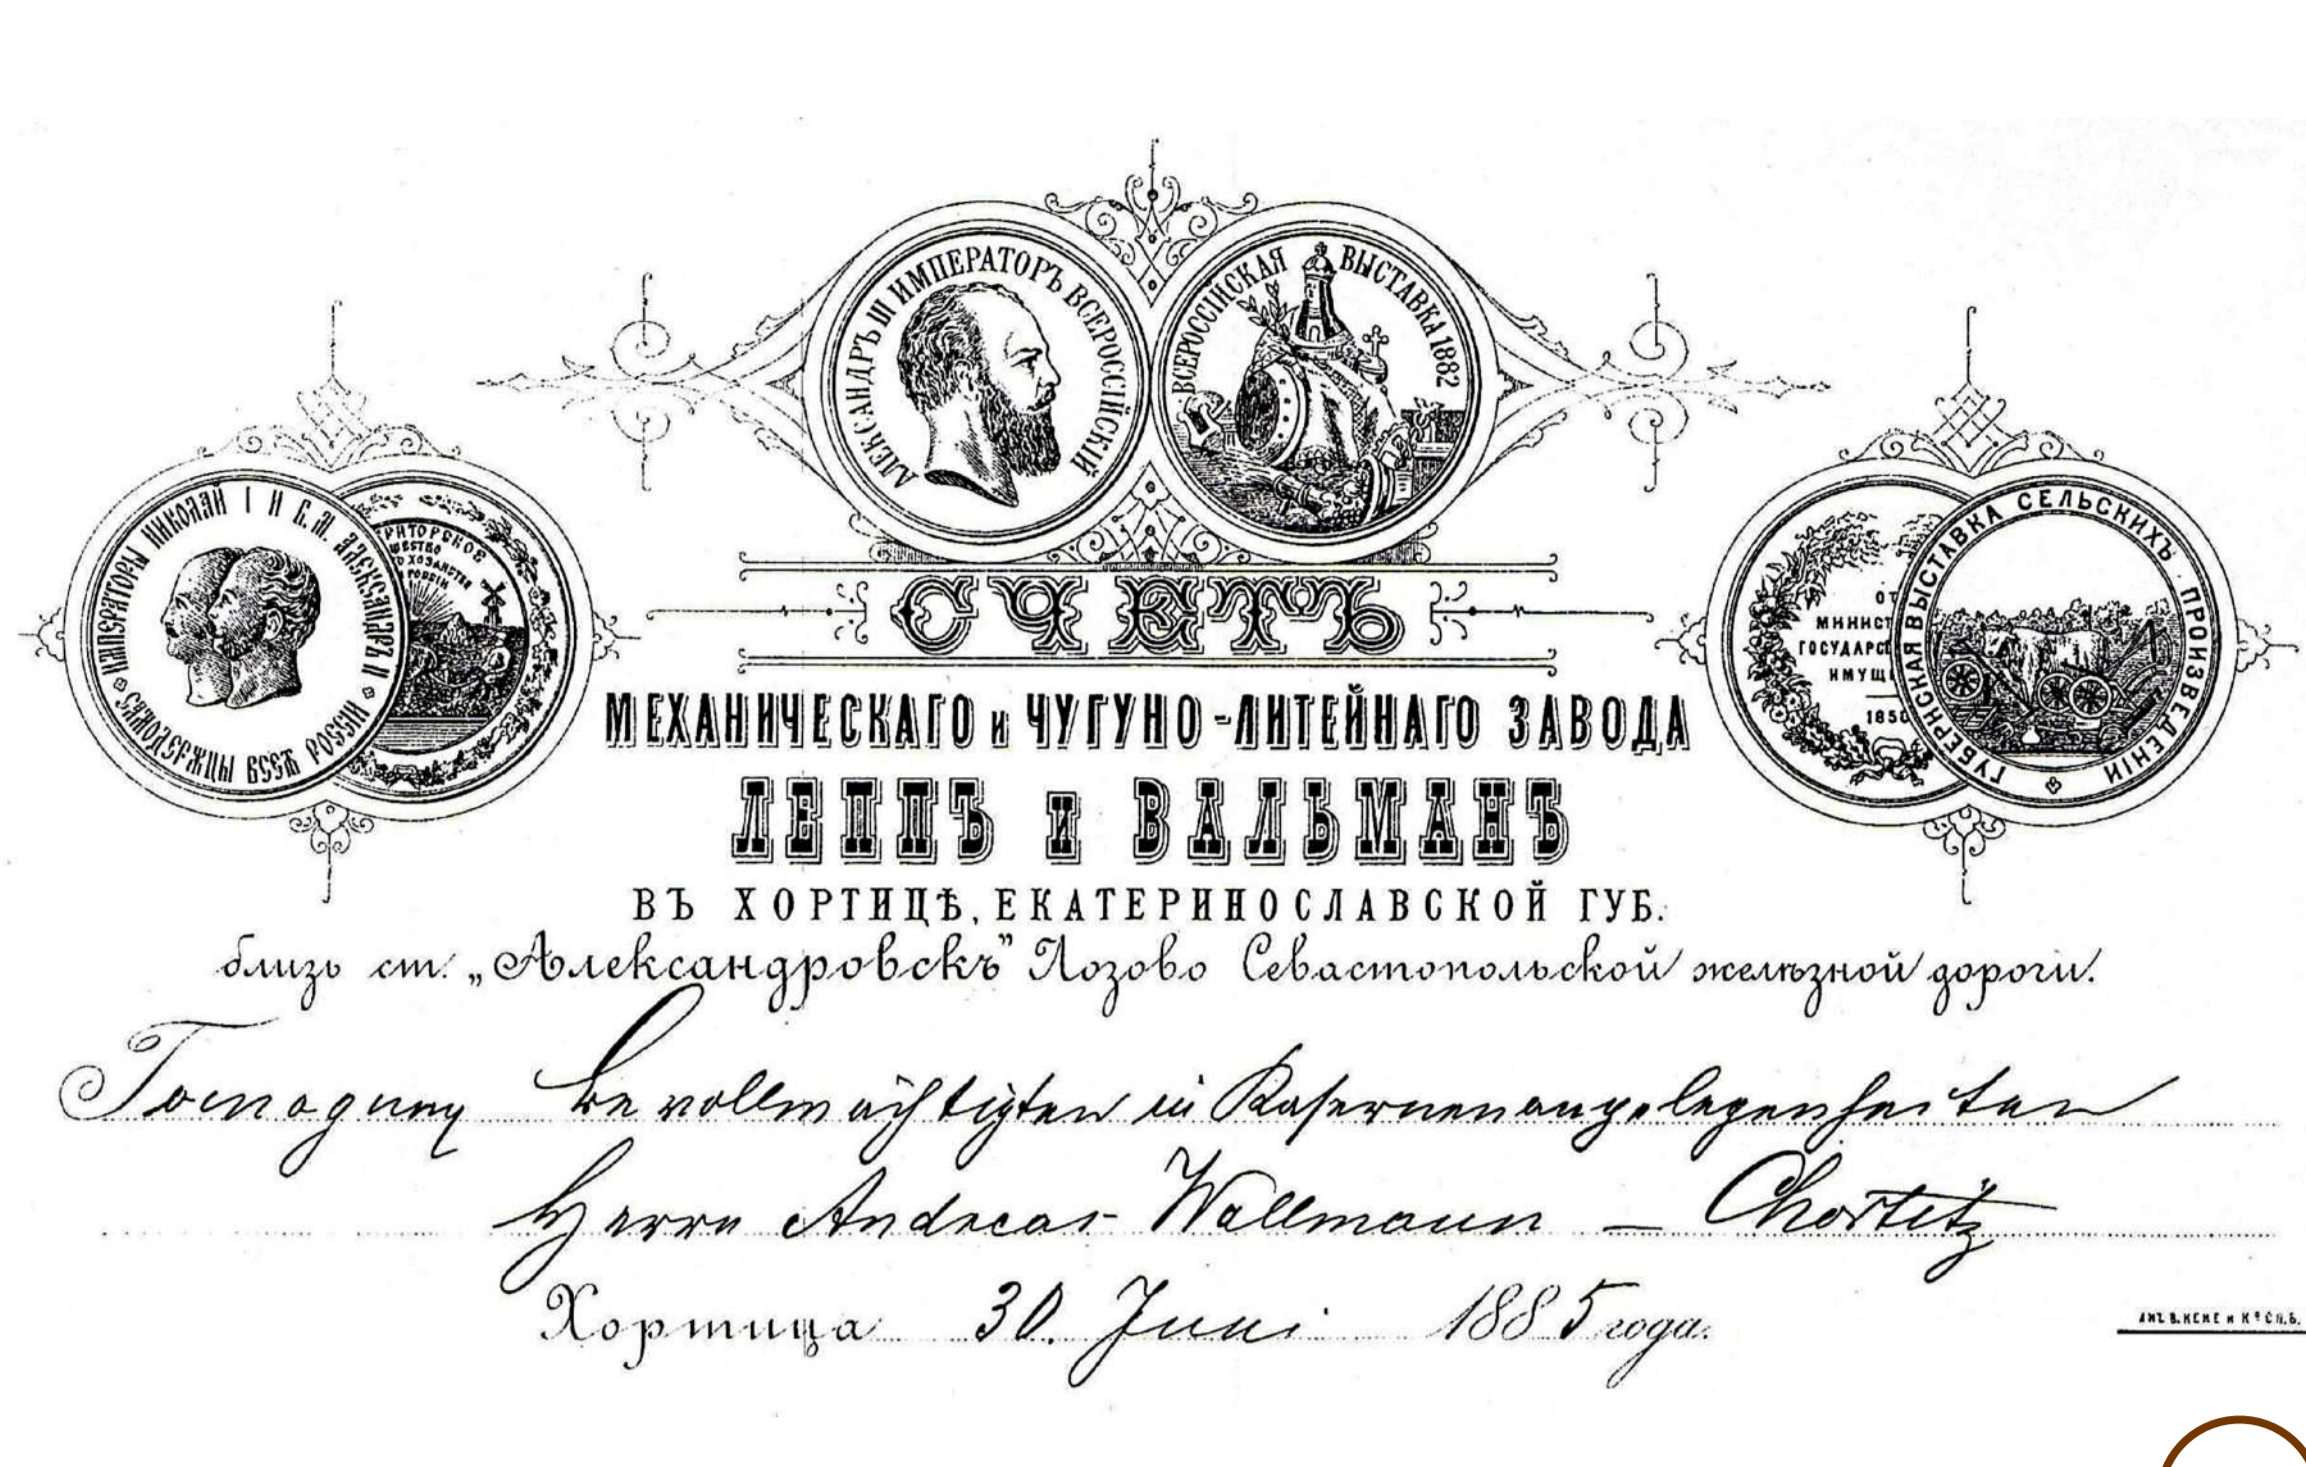 АЛЕКСАНДРЪ III ИМПЕРАТОРЪ ВСЕРОССІЙСКІЙ
ВСЕРОССІЙСКАЯ ВЫСТАВКА 1882
ИМПЕРАТОРЫ НИКОЛАЙ I И АЛЕКСАНДРЪ II
САМОДЕРЖЦЫ ВСЕЯ РОССІИ
ОТ
МИНИСТ
ГОСУДАРС
ИМУЩ
185
ГУБЕРНСКАЯ ВЫСТАВКА СЕЛЬСКИХЪ ПРОИЗВЕДЕНІЙ
СЧЕТЪ
МЕХАНИЧЕСКАГО и ЧУГУНО-ЛИТЕЙНАГО ЗАВОДА
ЛЕППЪ И ВАЛЬМАНЪ
ВЪ ХОРТИЦѢ, ЕКАТЕРИНОСЛАВСКОЙ ГУБ.
близь ст. „Александровскъ” Лозово Севастопольской желѣзной дороги.
Господину Bevollmächtigten in Kasernenangelegenheiten
Herrn Andreas Wallmann – Chortitz
Хортица 30. Juni 1885 года.